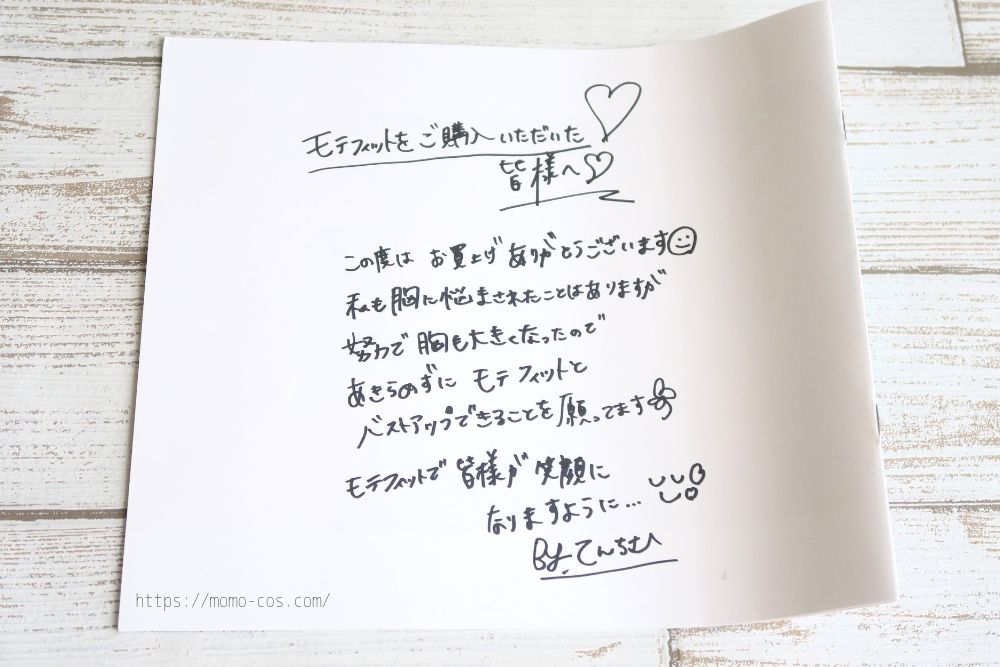 モテフィットをご購入いただいた
皆様へ
この度は お買上げ ありがとうございます
私も胸に悩まされたことはありますが
努力で 胸も大きくなったので
あきらめずに モテフィットと
バストアップできることを願ってます
モテフィットで 皆様が 笑顔に
なりますように…
By. てんちむ
https://momo-cos.com/